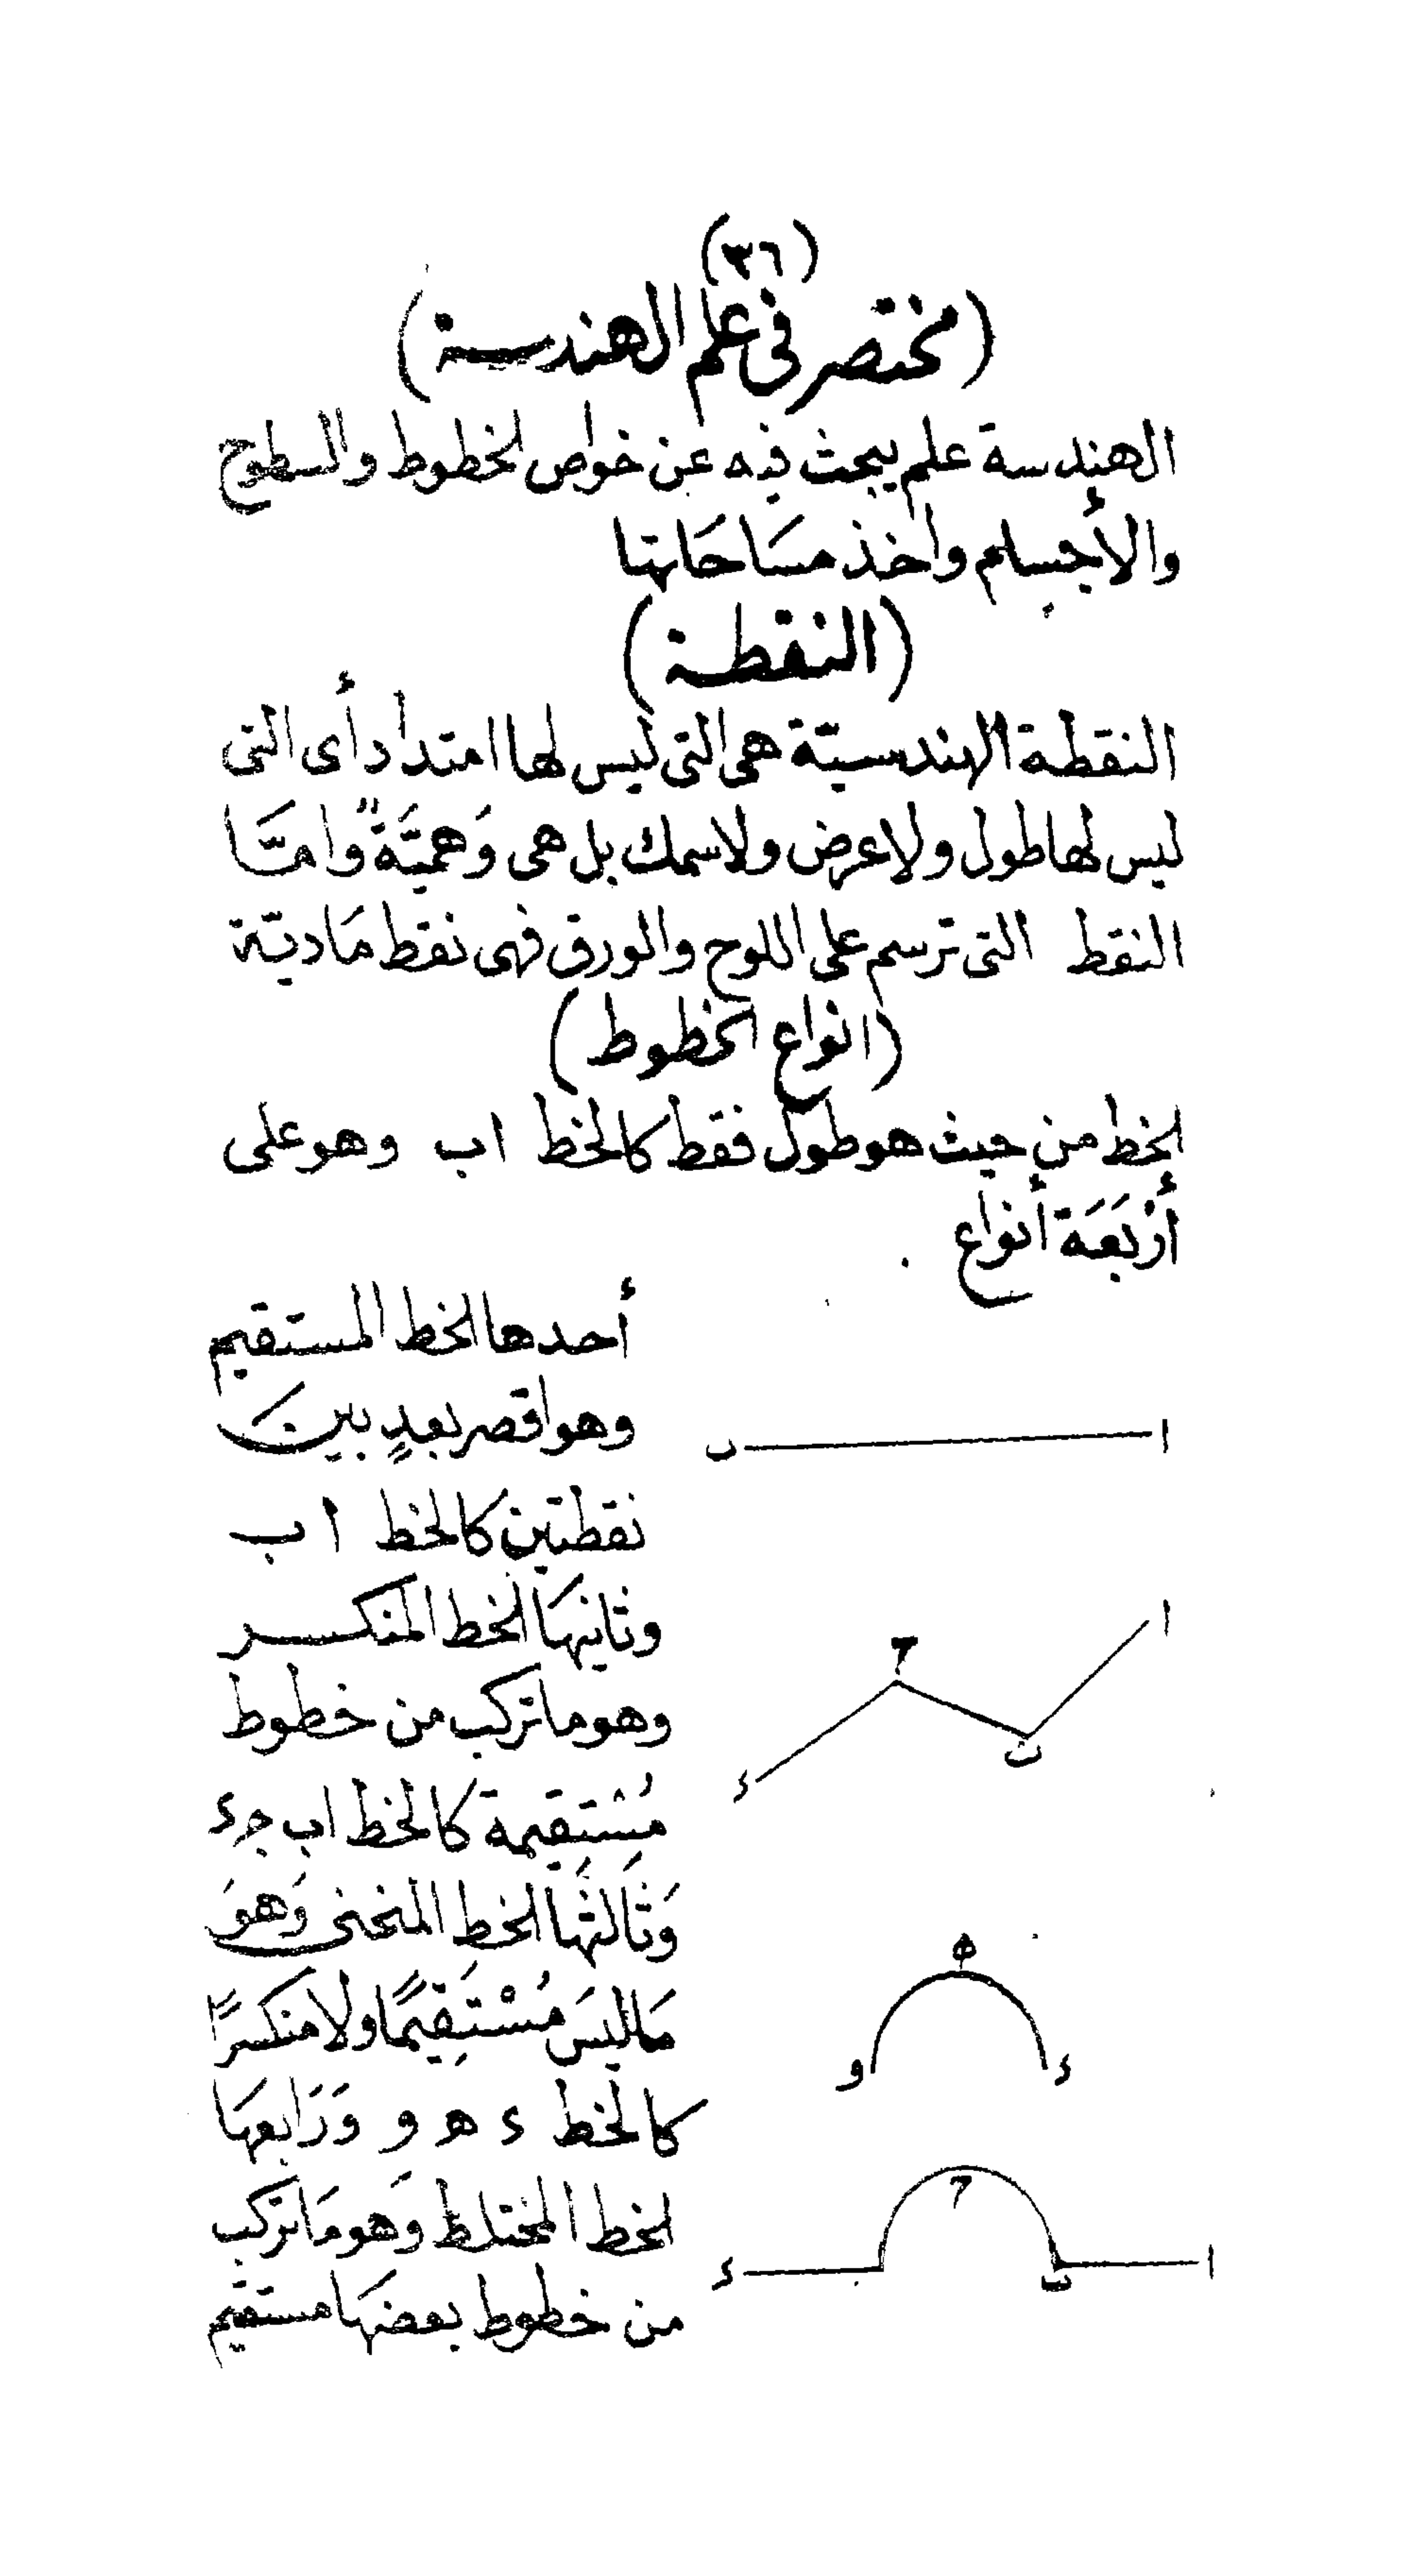 (٣٦)
(مختصر فى علم الهندسة)
الهندسة علم يبحث فيه عن خواص الخطوط والسطوح
والأجسام وأخذ مسَاحَاتها
(النقطة)
النقطة الهندسيّة هى التى ليس لها امتداد أى التى
ليس لها طول ولا عرض ولا سمك بل هى وَهميَّةً وامَّا
النقط التى ترسم على اللوح والورق فهى نقط مَاديّة
(انواع الخطوط)
الخط من حيث هو طول فقط كالخط اب وهو على
أرْبَعَة أنواع
أحدها الخط المستقيم
وهو اقصر بعدٍ بين
نقطتين كالخط ا ب
وثانيهَا الخط المنكسر
وهو ما تركب من خطوط
مُسْتِقيمة كالخط اب جء
وَثَالثَهَا الخط المنحنى وَهوَ
مَا ليسَ مُسْتَقِيمًا ولا منكسرًا
كالخط ء ه و وَرَابعهَا
الخط المختلط وَهو مَا تركب
من خطوط بعضهَا مستقيم
ا ب
ا ب ح ء
ء ه و
ا ب ح ء